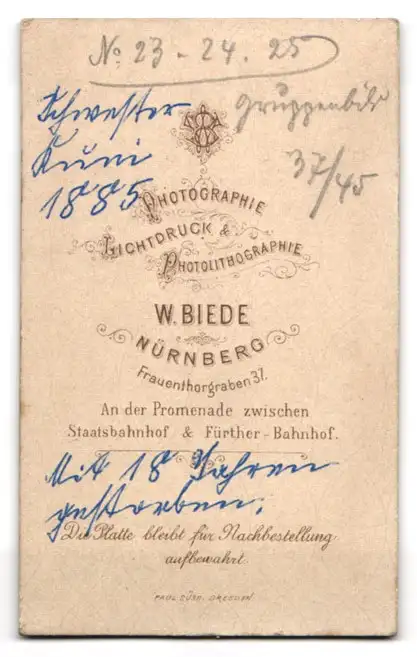 No 23 - 24. 25
Schwester
Kuni
1885
Gruppenbild
37/45
PHOTOGRAPHIE
LICHTDRUCK &
PHOTOLITHOGRAPHIE
W. BIEDE
NÜRNBERG
Frauenthorgraben 37.
An der Promenade zwischen
Staatsbahnhof & Fürther-Bahnhof.
Mit 18 Jahren
gestorben.
Die Platte bleibt für Nachbestellung
aufbewahrt
PAUL SÜSS, DRESDEN